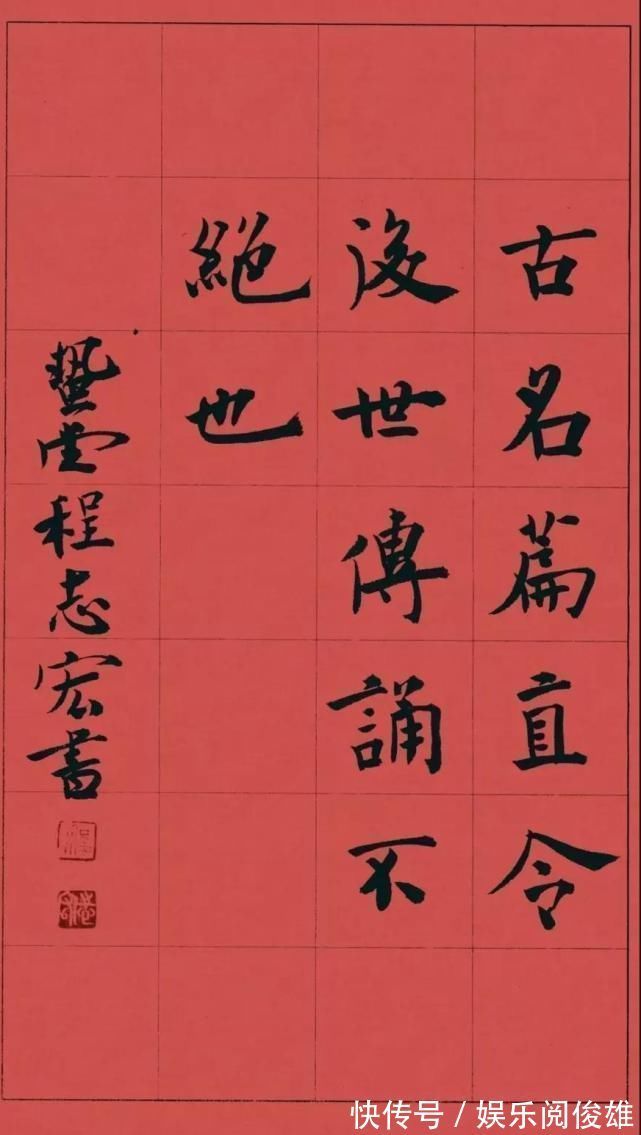 古名篇直令
後世傳誦不
絶也
蟄堂程志宏書
快传号 / 娱乐阅俊雄